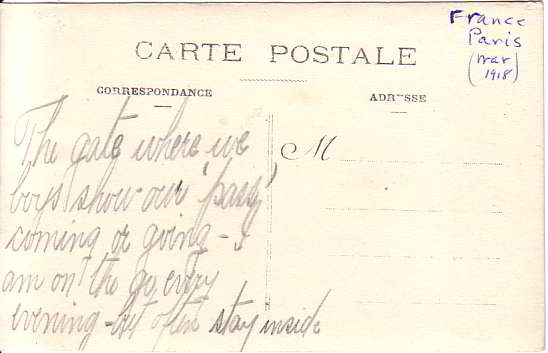 France
Paris
(war
1918)
CARTE POSTALE
CORRESPONDANCE
ADRESSE
M
The gate where we
boys show our 'pass'
coming or going - I
am on the go every
evening - but often stay inside